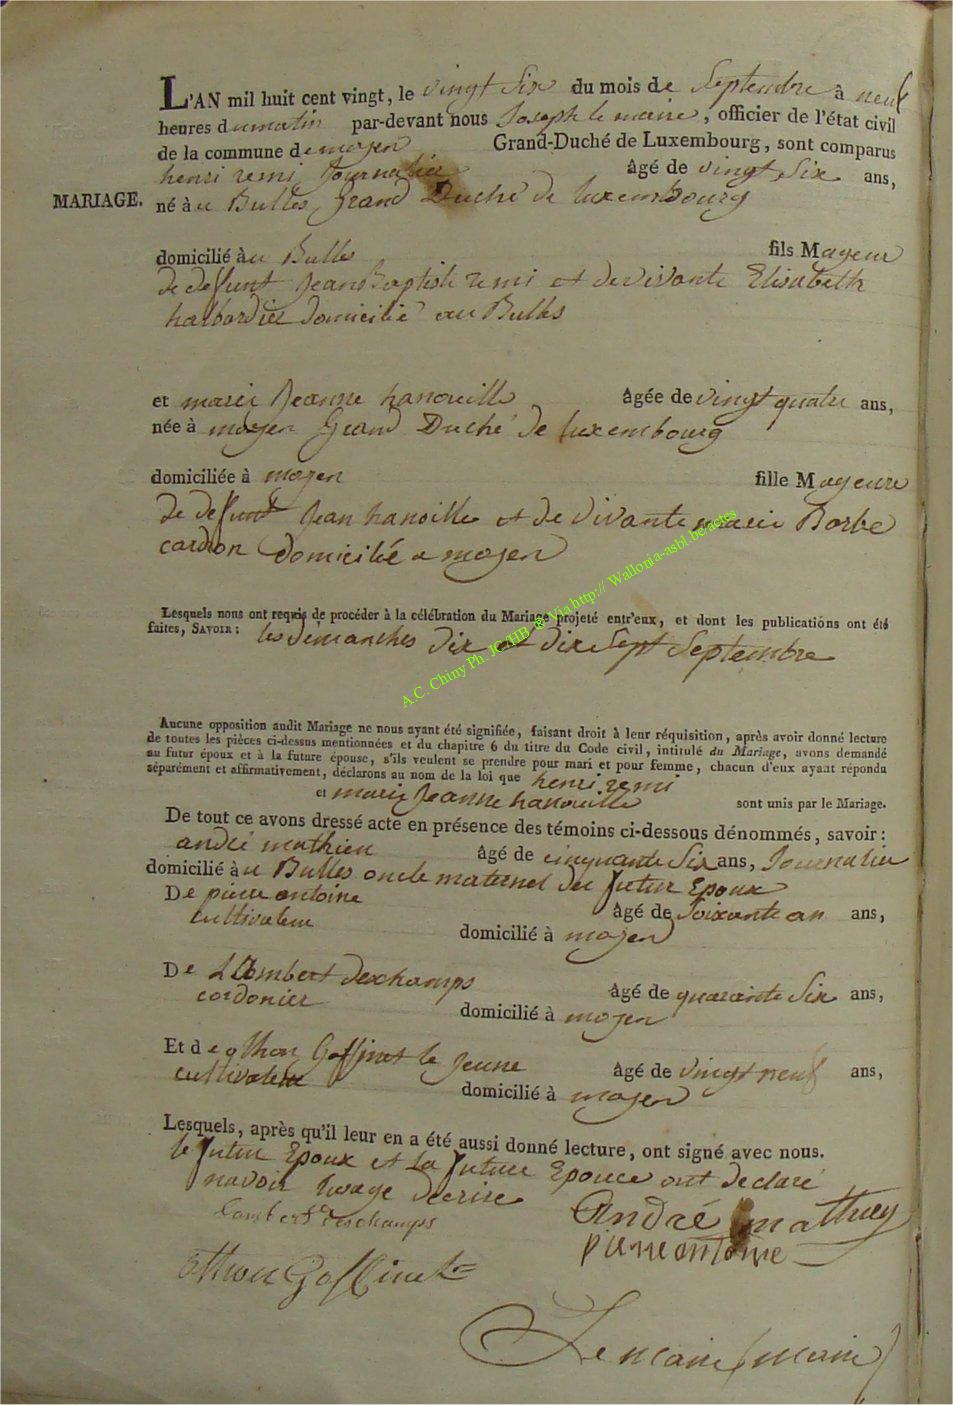 L'AN mil huit cent vingt, le vingt Six du mois de Septembre à neuf
heures dumatin par-devant nous Joseph le maire, officier de l'état civil
de la commune de moyen Grand-Duché de Luxembourg, sont comparus
henri remi Journalier âgé de vingt Six ans,
MARIAGE. né à u Bulles Grand Duché de luxembourg
domicilié à u Bulles fils Mageur
de deffunt Jean Baptish remi et de vivante Elisabeth
halbardier domicilié au Bulles
et marie Jeanne hanouille âgée de vingt quatre ans,
née à moyen Grand Duché de luxembourg
domiciliée à moyen fille Mageure
de deffunt Jean hanoille et de vivante marie Borbe
cardron domiciliée a moyen
Lesquels nous ont requis de procéder à la célébration du Mariage projeté entr'eux, et dont les publications ont été
faites, SAVOIR : les demanches dix et dix Sept Septembre
A.C. Chiny Ph. JC/HB & Via http:// Wallonia-asbl.be/actes
Aucune opposition audit Mariage ne nous ayant été signifiée, faisant droit à leur réquisition, après avoir donné lecture
de toutes les pièces ci-dessus mentionnées et du chapitre 6 du titre du Code civil, intitulé du Mariage, avons demandé
au futur époux et à la future épouse, s'ils veulent se prendre pour mari et pour femme, chacun d'eux ayant répondu
séparément et affirmativement, déclarons au nom de la loi que henri remi
et marie Jeanne hanouille sont unis par le Mariage.
De tout ce avons dressé acte en présence des témoins ci-dessous dénommés, savoir :
andré mathieu âgé de cinquante Six ans, Journalier
domicilié à u Bulles oncle maternel du futur Epoux
De pierre antoine âgé de Soixante an ans,
cultivateur domicilié à moyen
De Lambert deschamps âgé de quarante Six ans,
cordonier domicilié à moyen
Et de othon Goffinet le jeune âgé de vingt neuf ans,
cultivateur domicilié à moyen
Lesquels, après qu'il leur en a été aussi donné lecture, ont signé avec nous.
le futur Epoux et La future Epouce ont declaré
navoir lusage decrire
Lambert deschamps André mathuey
pierre antoine
othon Goffinet
Le maire (maire)